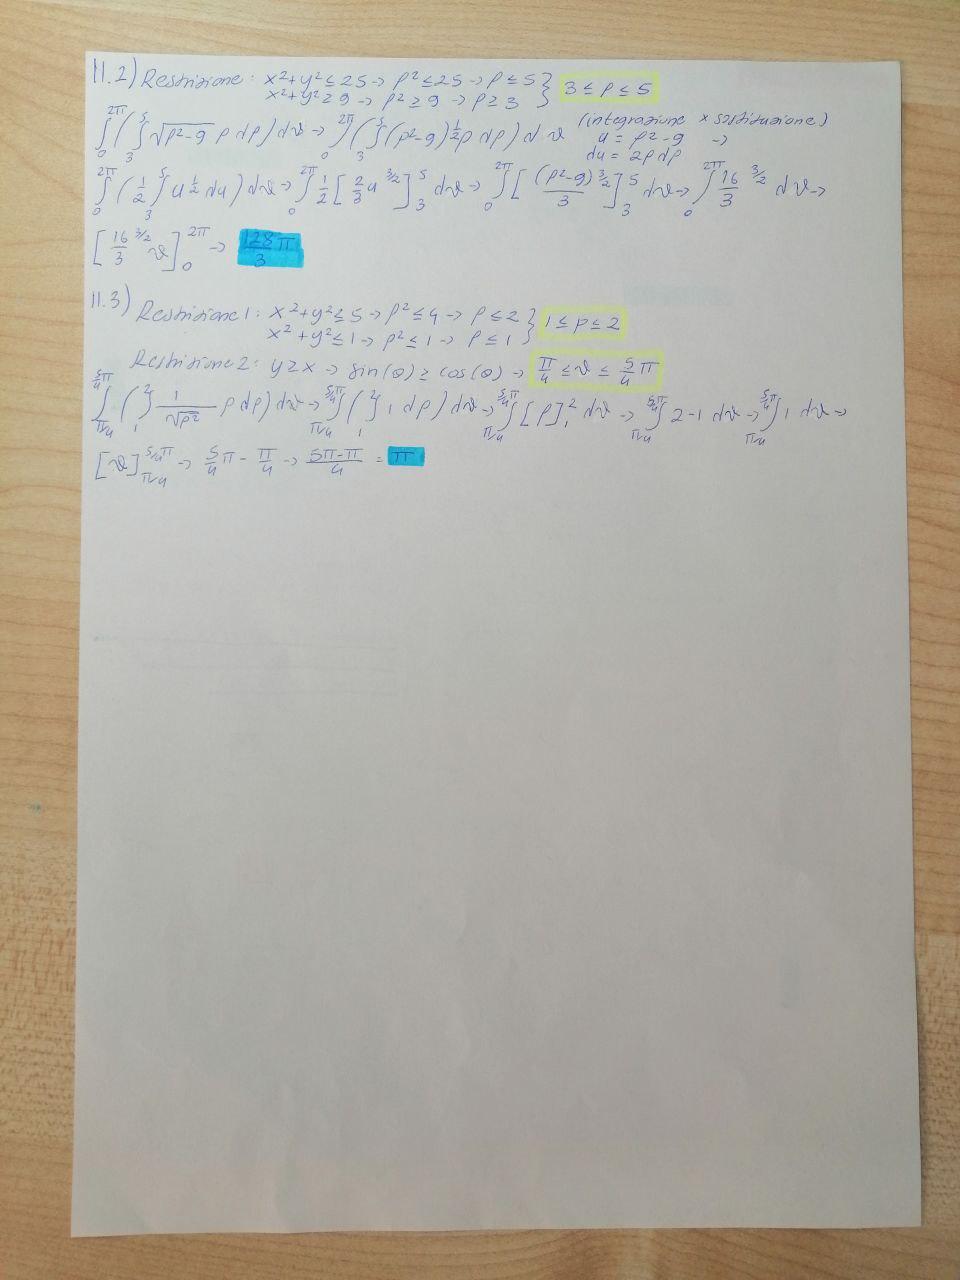 11.2) Restrizione: x²+y² ≤ 25 → ρ² ≤ 25 → ρ ≤ 5 } 3 ≤ ρ ≤ 5
x²+y² ≥ 9 → ρ² ≥ 9 → ρ ≥ 3
∫₀^2π (∫₃^5 √(ρ²-9) ρ dρ) dϑ → ∫₀^2π (∫₃^5 (ρ²-9)^1/2 ρ dρ) dϑ (integrazione x sostituzione)
u = ρ²-9 →
du = 2ρ dρ
∫₀^2π (1/2 ∫₃^5 u^1/2 du) dϑ → ∫₀^2π 1/2 [2/3 u^3/2]₃^5 dϑ → ∫₀^2π [(ρ²-9)^3/2 / 3]₃^5 dϑ → ∫₀^2π 16/3 ^3/2 dϑ →
[16/3 ^3/2 ϑ]₀^2π → 128/3 π
11.3) Restrizione 1: x²+y² ≤ 5 → ρ² ≤ 4 → ρ ≤ 2 } 1 ≤ ρ ≤ 2
x²+y² ≤ 1 → ρ² ≤ 1 → ρ ≤ 1
Restrizione 2: y ≥ x → sin(θ) ≥ cos(θ) → π/4 ≤ ϑ ≤ 5/4 π
∫_π/4^5/4π (∫₁^2 1/√ρ² ρ dρ) dϑ → ∫_π/4^5/4π (∫₁^2 1 dρ) dϑ → ∫_π/4^5/4π [ρ]₁^2 dϑ → ∫_π/4^5/4π 2-1 dϑ → ∫_π/4^5/4π 1 dϑ →
[ϑ]_π/4^5/4π → 5/4 π - π/4 → 5π-π/4 = π